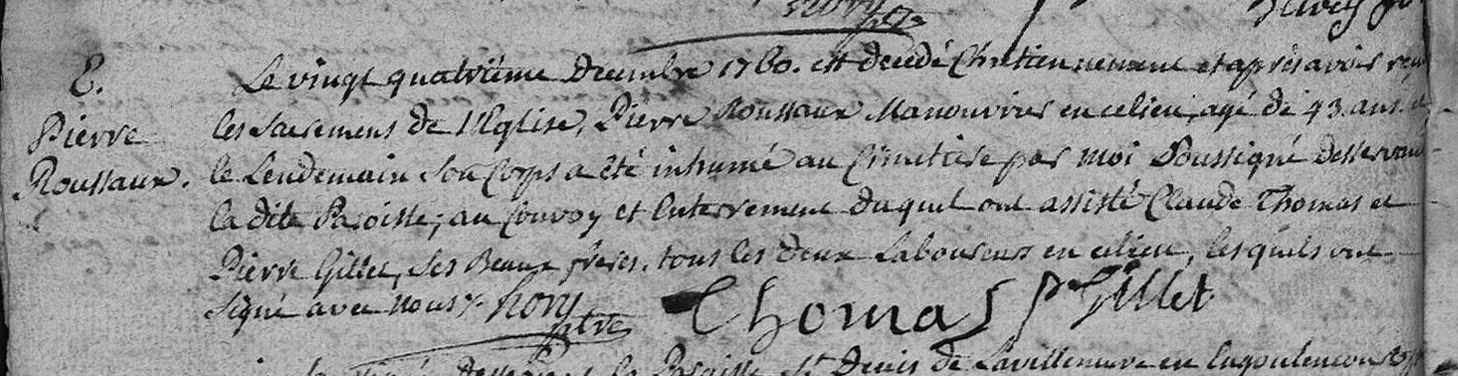 E.
Pierre
Roussaux.
Le vingt quatrième Decembre 1760. est decedé Chretiennement et aprés avoir reçu
les Sacremens de l'Eglise, Pierre Roussaux Manouvrier en ce lieu, agé de 43 ans. et
le Lendemain Son Corps a été inhumé au Cimetiere par moi Soussigné Desservant
la dite Paroisse; au Convoy et Enterrement duquel ont assisté Claude Thomas et
Pierre Gillet, Ses Beaux freres, tous les deux Laboureurs en ce lieu, lesquels ont
Signé avec nous
ptre
Thomas P Gillet
Desservant la Paroisse St Denis de Lavilleneuve en